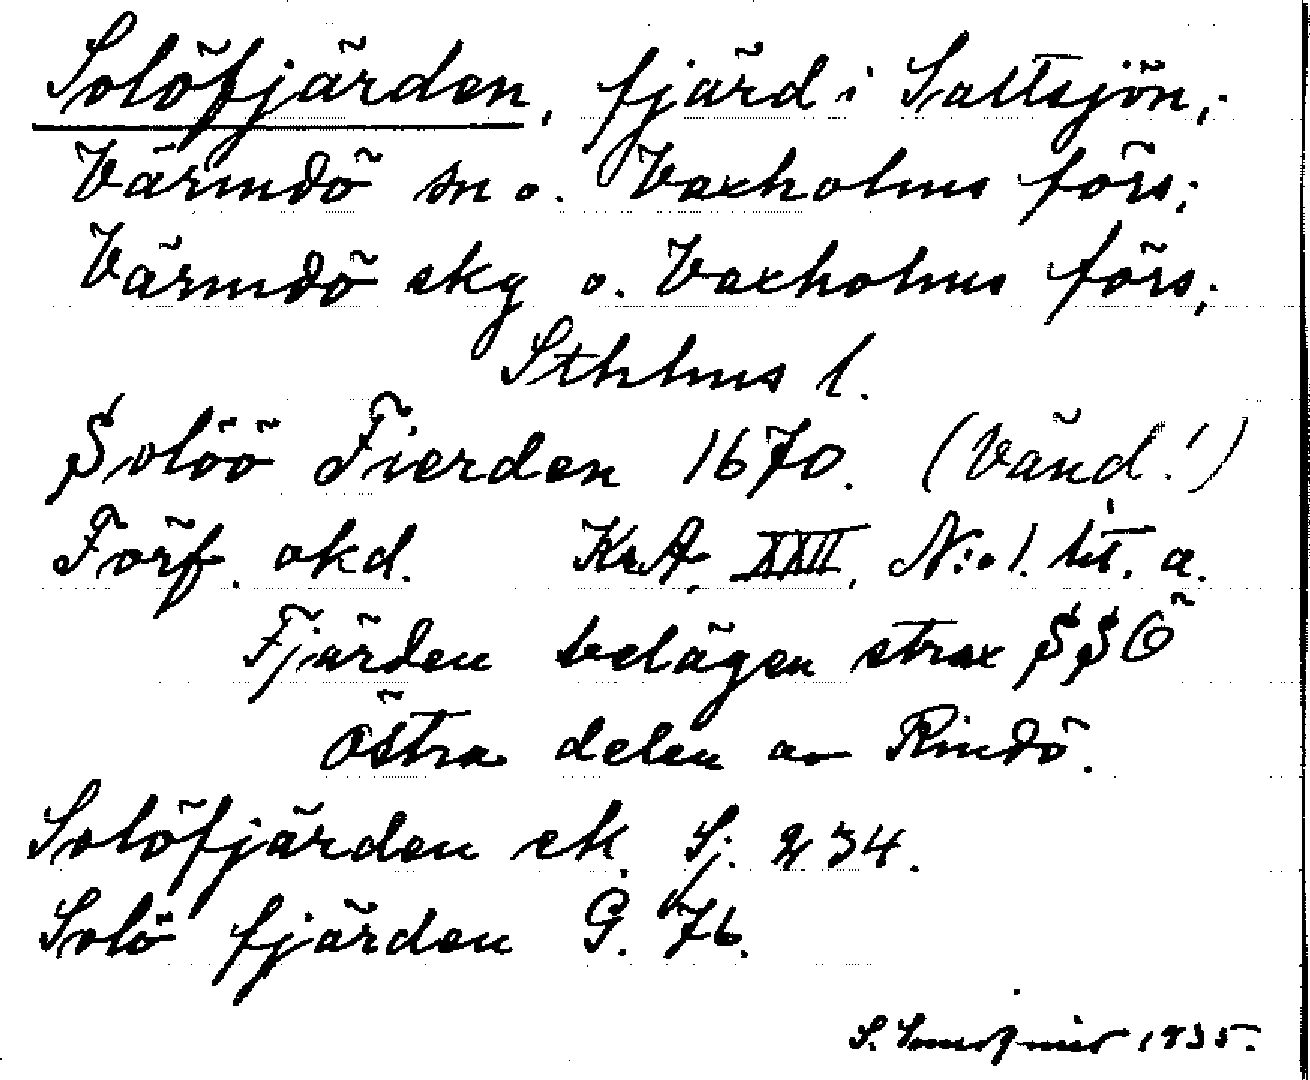 Solöfjärden, fjärd i Saltsjön,
Värmdö sn o. Vaxholms förs;
Värmdö skg o. Vaxholms förs;
Sthlms l.
Solöö Fierden 1670. (Vänd!)
Förf. okd. KrA, XXII, N:o 1. lit. a.
Fjärden belägen strax SSÖ
östra delen av Rindö.
Solöfjärden ek. S. 234.
Solö fjärden G. 76.
S. 1935.